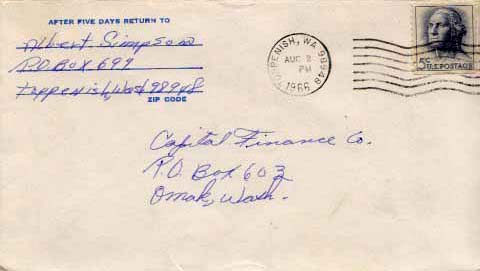 AFTER FIVE DAYS RETURN TO
Albert Simpson
P.O Box 699
Toppenish, Wash 98948
ZIP CODE
TOPPENISH, WA 98948
AUG 2
PM
1966
5¢ U.S. POSTAGE
Capital Finance Co.
P.O. Box 603
Omak, Wash.